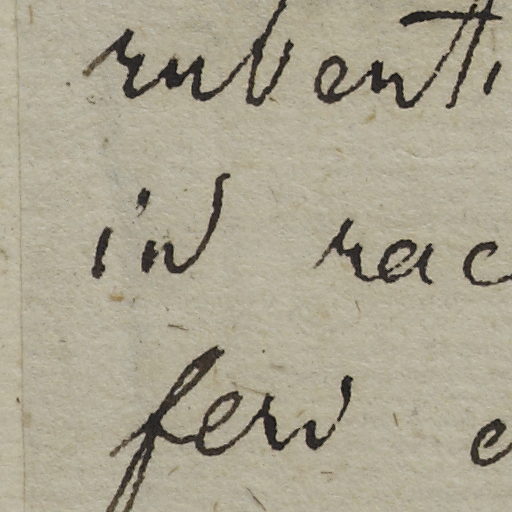 rubenti
in rac
fero e